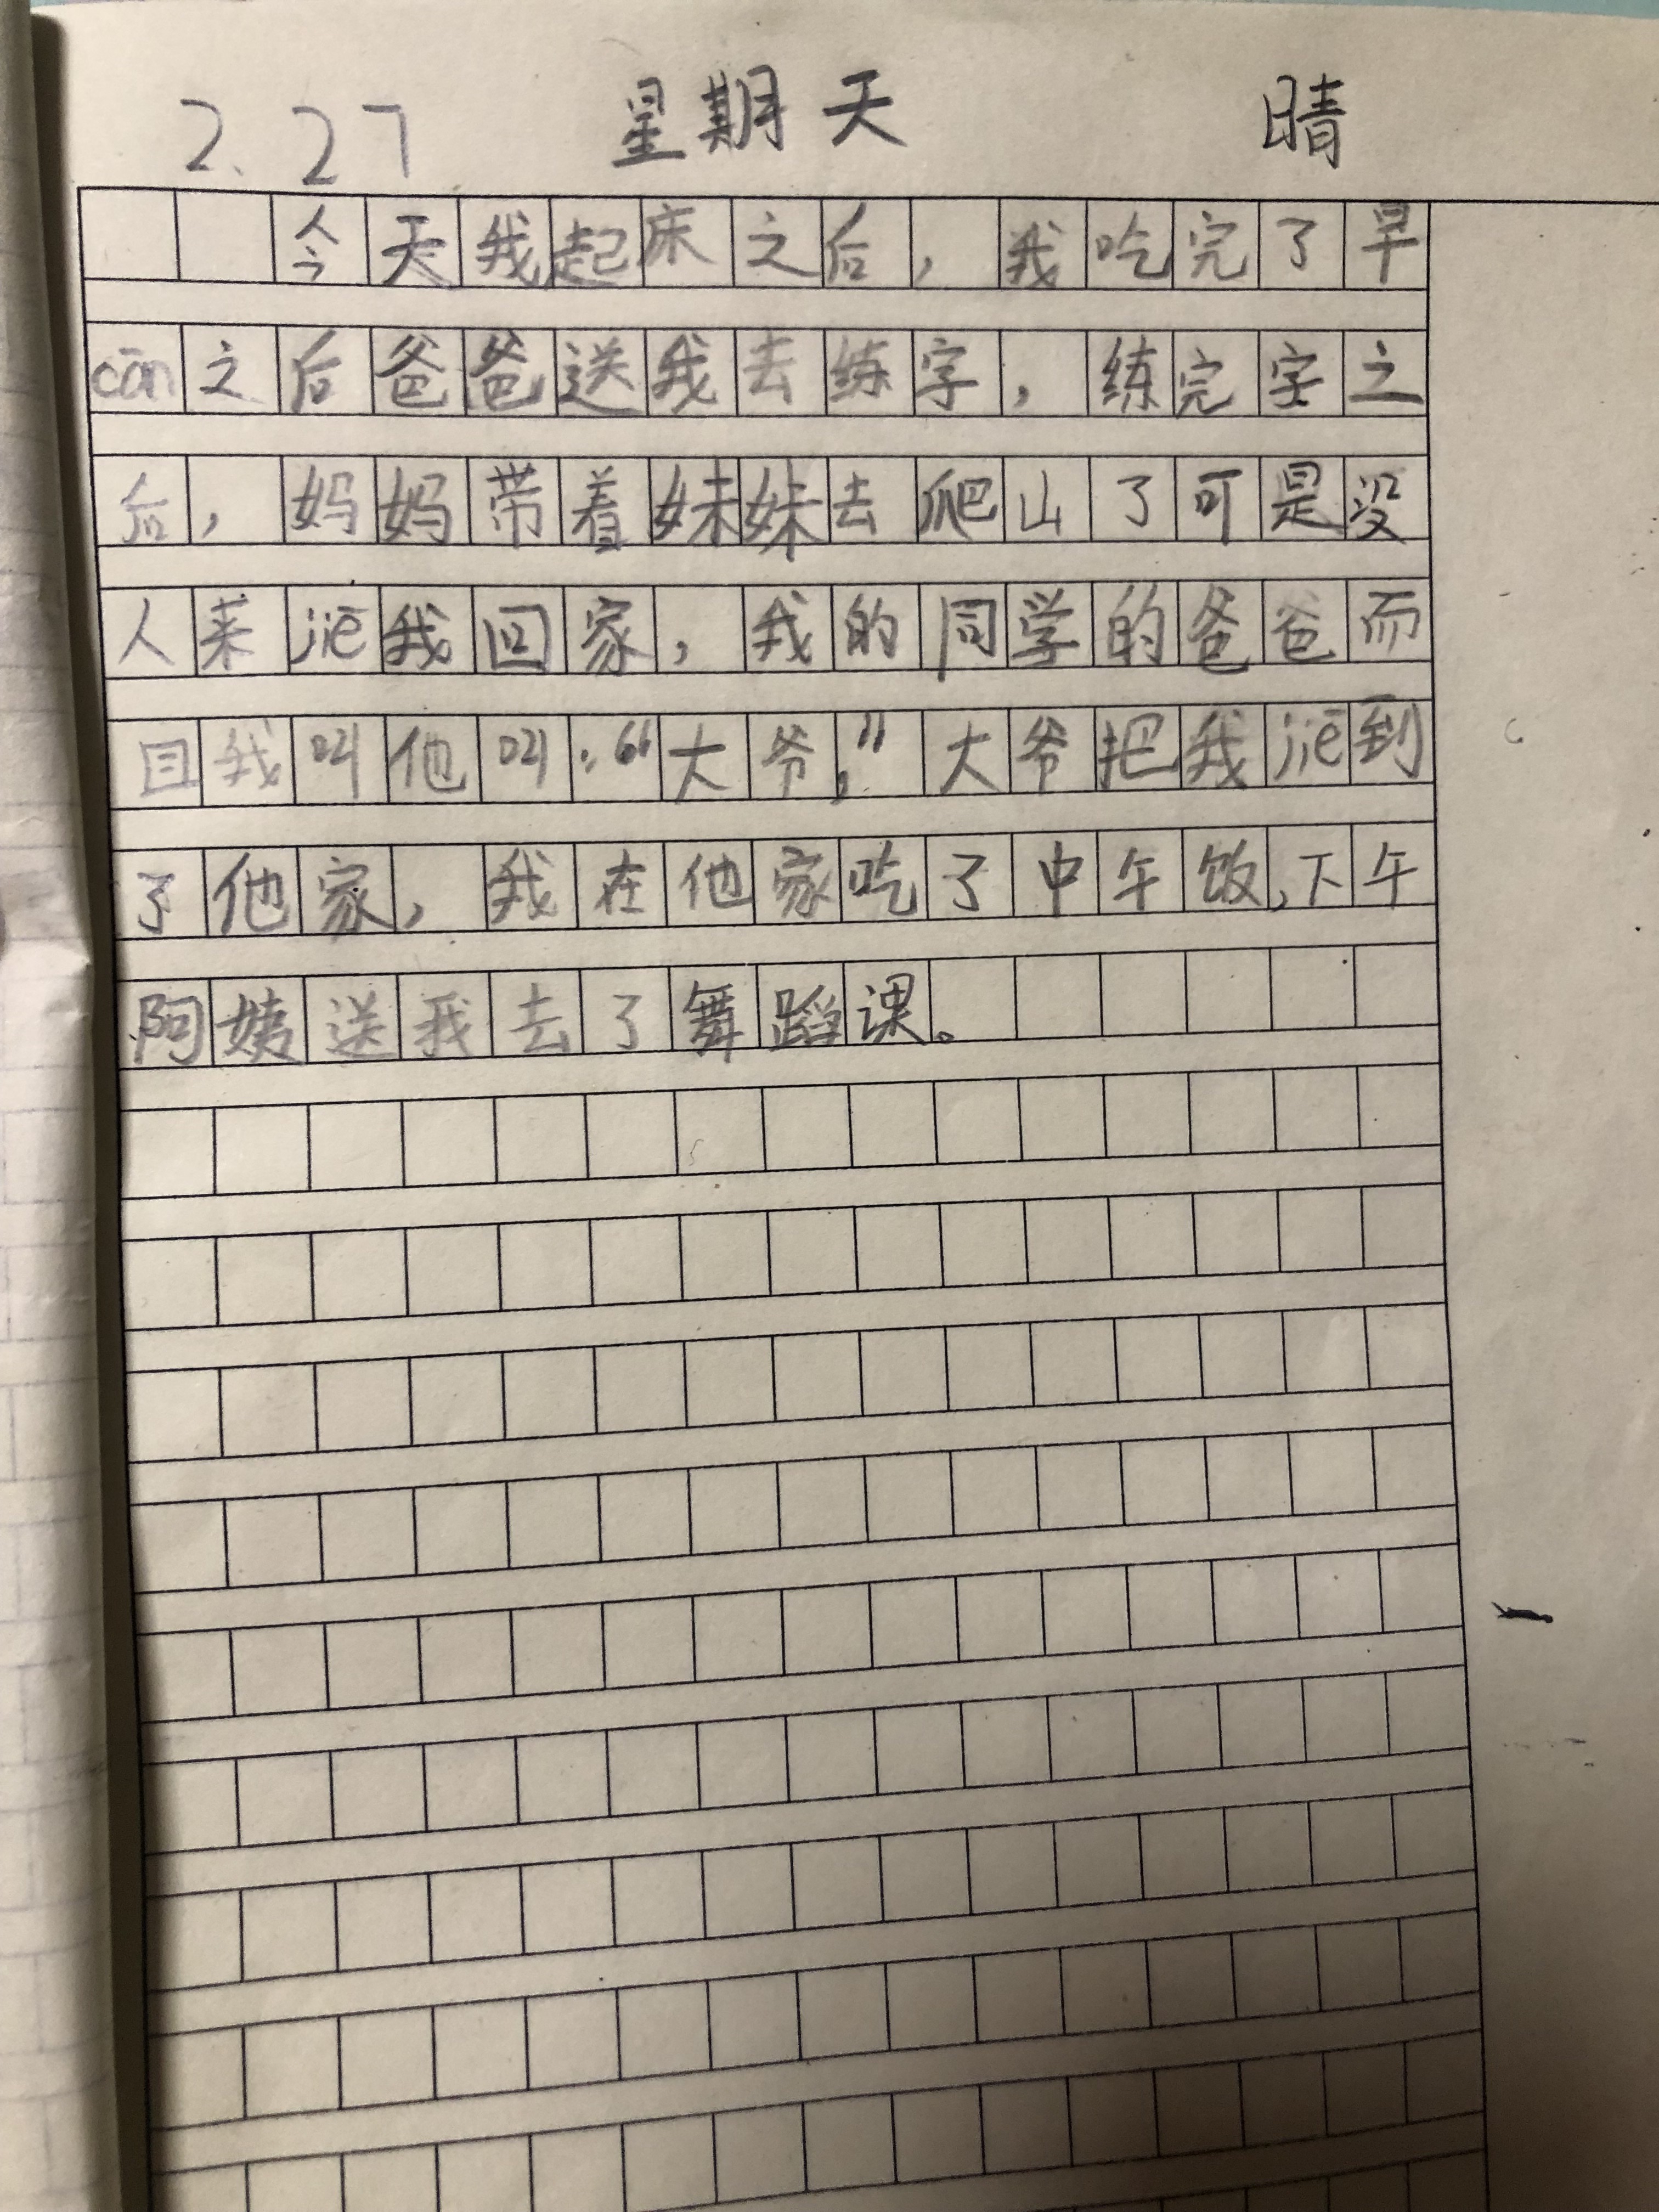 2.27 星期天 晴
今天我起床之后，我吃完了早
cān之后爸爸送我去练字，练完字之
后，妈妈带着妹妹去爬山了可是没
人来jiē我回家，我的同学的爸爸而
且我叫他叫：“大爷，”大爷把我jiē到
了他家，我在他家吃了中午饭，下午
阿姨送我去了舞蹈课。